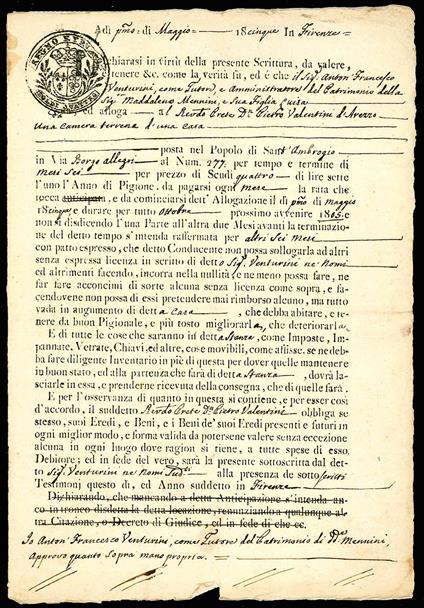 Adì pmo: di Maggio 18cinque In Firenze
Dichiarasi in virtù della presente Scrittura, da valere,
tenere &c. come la verità fu, ed è che il Sig. Anton' Francesco
Venturini, come Tutore, e Amministratore del Patrimonio della
Sig. Maddalena Mennini, e Sua Figlia Luisa
ed alloga al Revdo Prete Dn. Pietro Valentini d'Arezzo
Una camera terrena d'una casa
posta nel Popolo di Sant' Ambrogio
in Via Borgo allegri al Num. 277. per tempo e termine di
mesi sei per prezzo di Scudi quattro di lire sette
l'uno l'Anno di Pigione, da pagarsi ogni mese la rata che
tocca anticipata, e da cominciarsi dett' Allogazione il dì pmo di maggio
18cinque, e durare per tutto ottobre prossimo avvenire 1805. e
non si disdicendo l'una Parte all'altra due Mesi avanti la terminazione
del detto tempo s'intenda raffermata per altri Sei mesi
con patto espresso, che detto Conducente non possa sollogarla ad altri
senza espressa licenza in scritto di detto Sig. Venturini ne' Nomi
ed altrimenti facendo, incorra nella nullità, e ne meno possa fare, ne
far fare acconcimi di sorte alcuna senza licenza come sopra, e facendovene
non possa di essi pretendere mai rimborso alcuno, ma tutto
vada in augumento di detta casa, che debba abitare, e tenere
da buon Pigionale, e più tosto migliorarla, che deteriorarla
E di tutte le cose che saranno in detta Stanza, come Imposte, Impannate,
Vetrate, Chiavi, ed altre, cose movibili, come affisse, se ne debba
fare diligente Inventario in piè di questa per dover quelle mantenere
in buon stato, ed alla partenza che farà di detta Stanza, dovrà lasciarle
in essa, e prenderne ricevuta della consegna, che di quelle farà.
E per l'osservanza di quanto in questa si contiene, e per esser così
d'accordo, il suddetto Revdo Prete Dn. Pietro Valentini obbliga se
stesso, suoi Eredi, e Beni, e i Beni de' suoi Eredi presenti e futuri in
ogni miglior modo, e forma valida da potersene valere senza eccezione
alcuna in ogni luogo dove ragion si tiene, a tutte spese di esso.
Debitore; ed in fede del vero, sarà la presente sottoscritta dal detto
Sig. Venturini ne' Nomi Sudti alla presenza de sottoscritti
Testimonj questo dì, ed Anno suddetto in Firenze
Dichiarando, che mancando a detta Anticipazione s'intenda anco
in tronco disdetta la locazione, renunziando a qualunque altra
Citazione, o Decreto di Giudice, ed in fede di che ec.
Io Anton' Francesco Venturini, come Tutore del Patrimonio di Da. Mennini,
Approvo quanto Sopra mano propria.